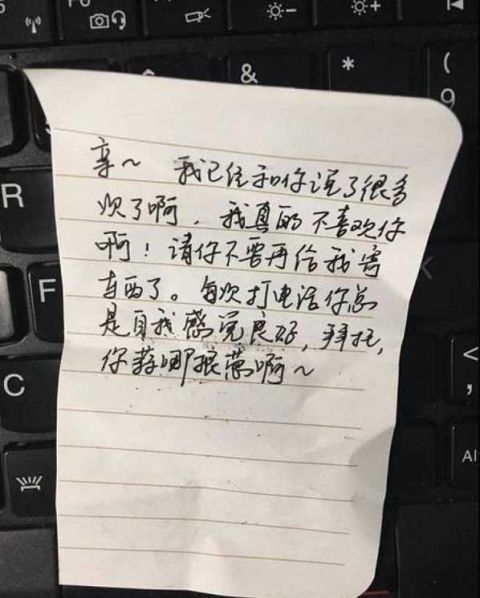 &
*
(
9
R
F
C
<
,
Al
亲~ 我已经和你说了很多
次了啊，我真的不喜欢你
啊！请你不要再给我寄
东西了。每次打电话你总
是自我感觉良好，拜托，
你算哪根葱啊~